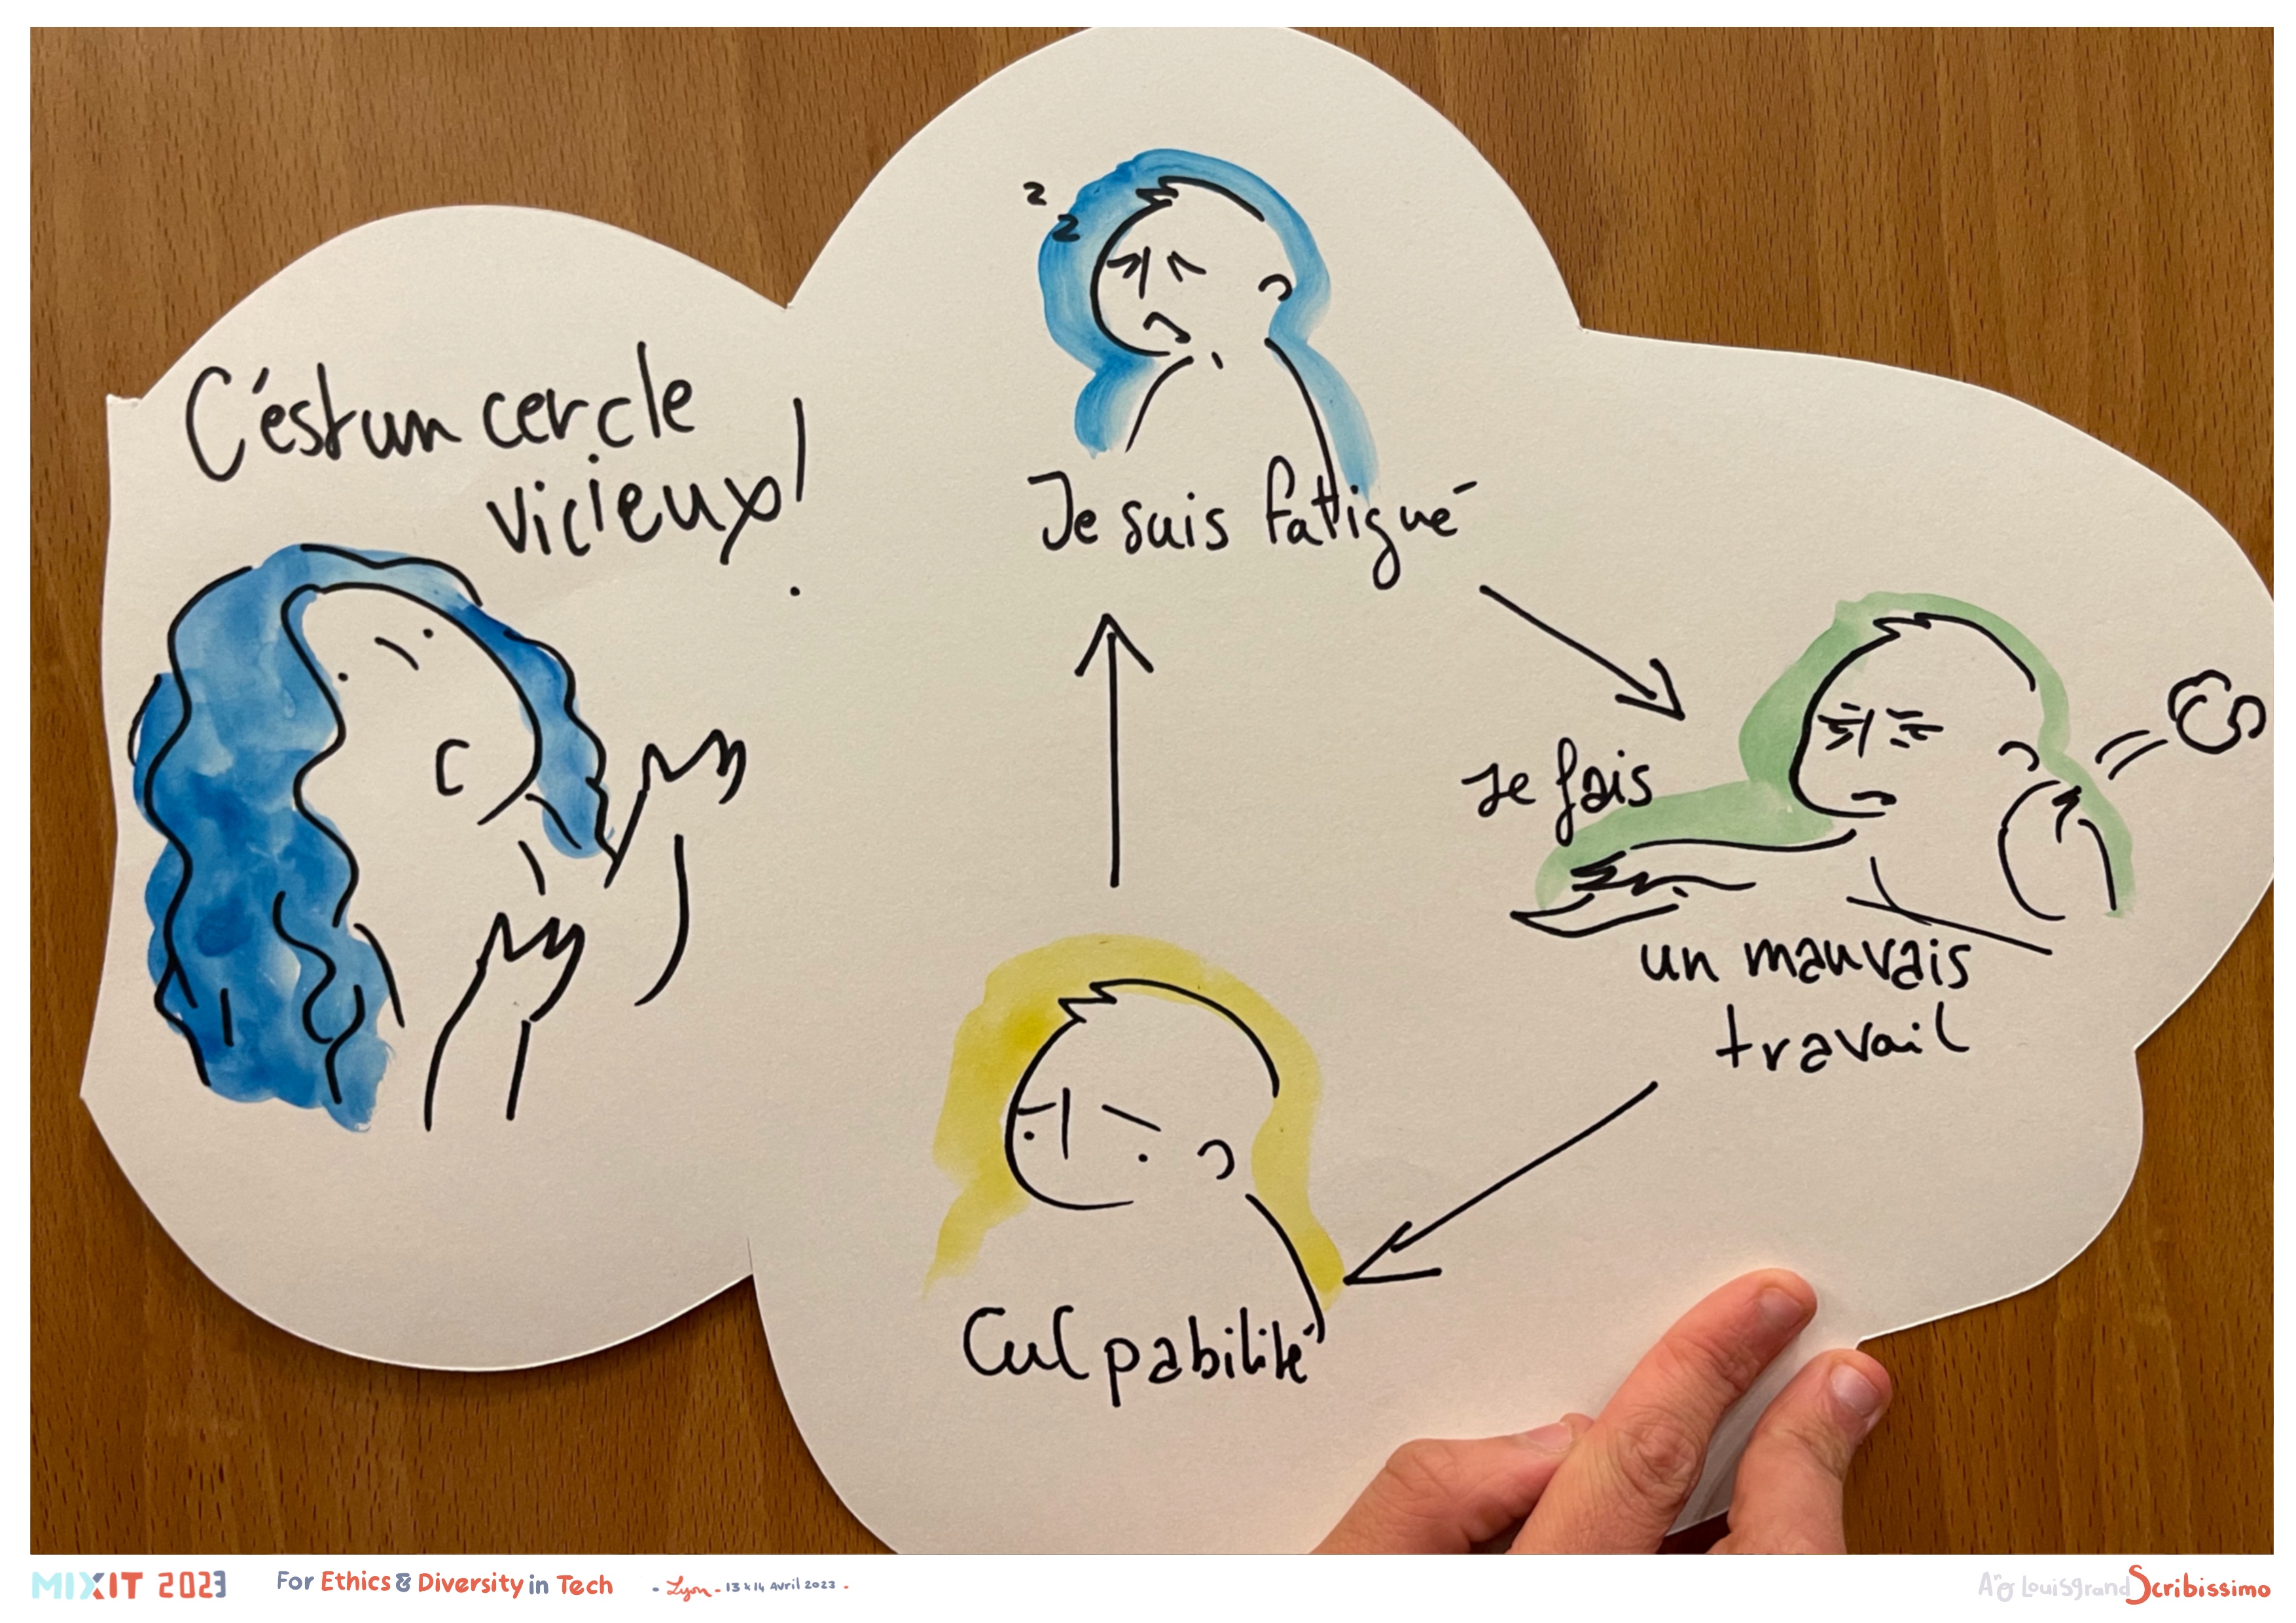 C'est un cercle
vicieux!
z
z
Je suis fatigué
Je fais
un mauvais
travail
Culpabilité
MIXIT 2023
For Ethics & Diversity in Tech
- Lyon - 13 & 14 Avril 2023 -
Louisgrand Scribissimo